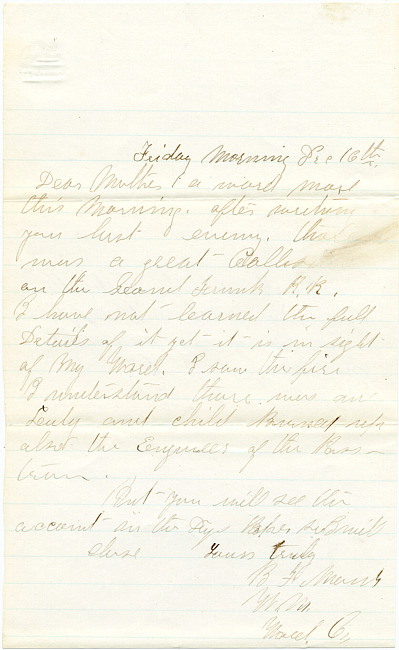 Friday Morning Dec 16th
Dear Mother a word more
this Morning. after writing
you last evening. there
was a great Collision
on the Grand Trunk R.R.
I have not learned the full
Details of it yet it is in sight
of My I saw the fire
I understand there was an
Lady and child Burned up
also the Engineer of the Pass
train
But you will see the
account in the so I will
close Yours truly
B F